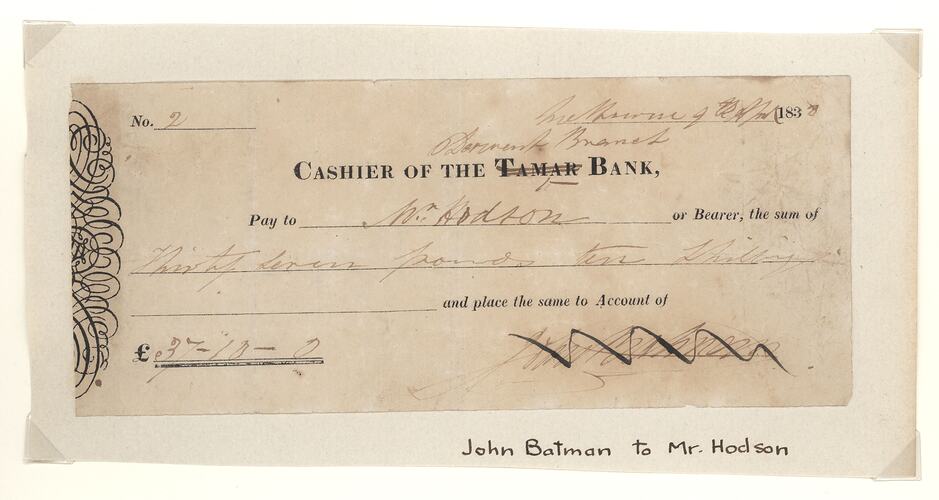 No. 2
Melbourne 9 1838
Derwent Branch
CASHIER OF THE TAMAR BANK,
Pay to Mr. Hodson or Bearer, the sum of
Thirty seven pounds ten Shillings
and place the same to Account of
£ 37-10-0
John Batman
John Batman to Mr. Hodson